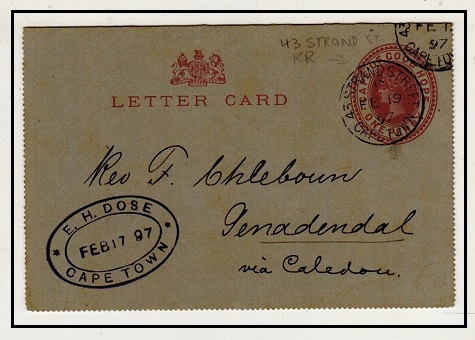 43 STRAND ST
RR →
43 FE 1
97
CAPE TOWN
CAPE OF GOOD HOPE
ONE PENNY
43 STRAND STREET
FE 19
97
CAPE TOWN
LETTER CARD
Rev F. Chleboun
Genadendal
via Caledon.
E. H. DOSE
FEB 17 97
CAPE TOWN